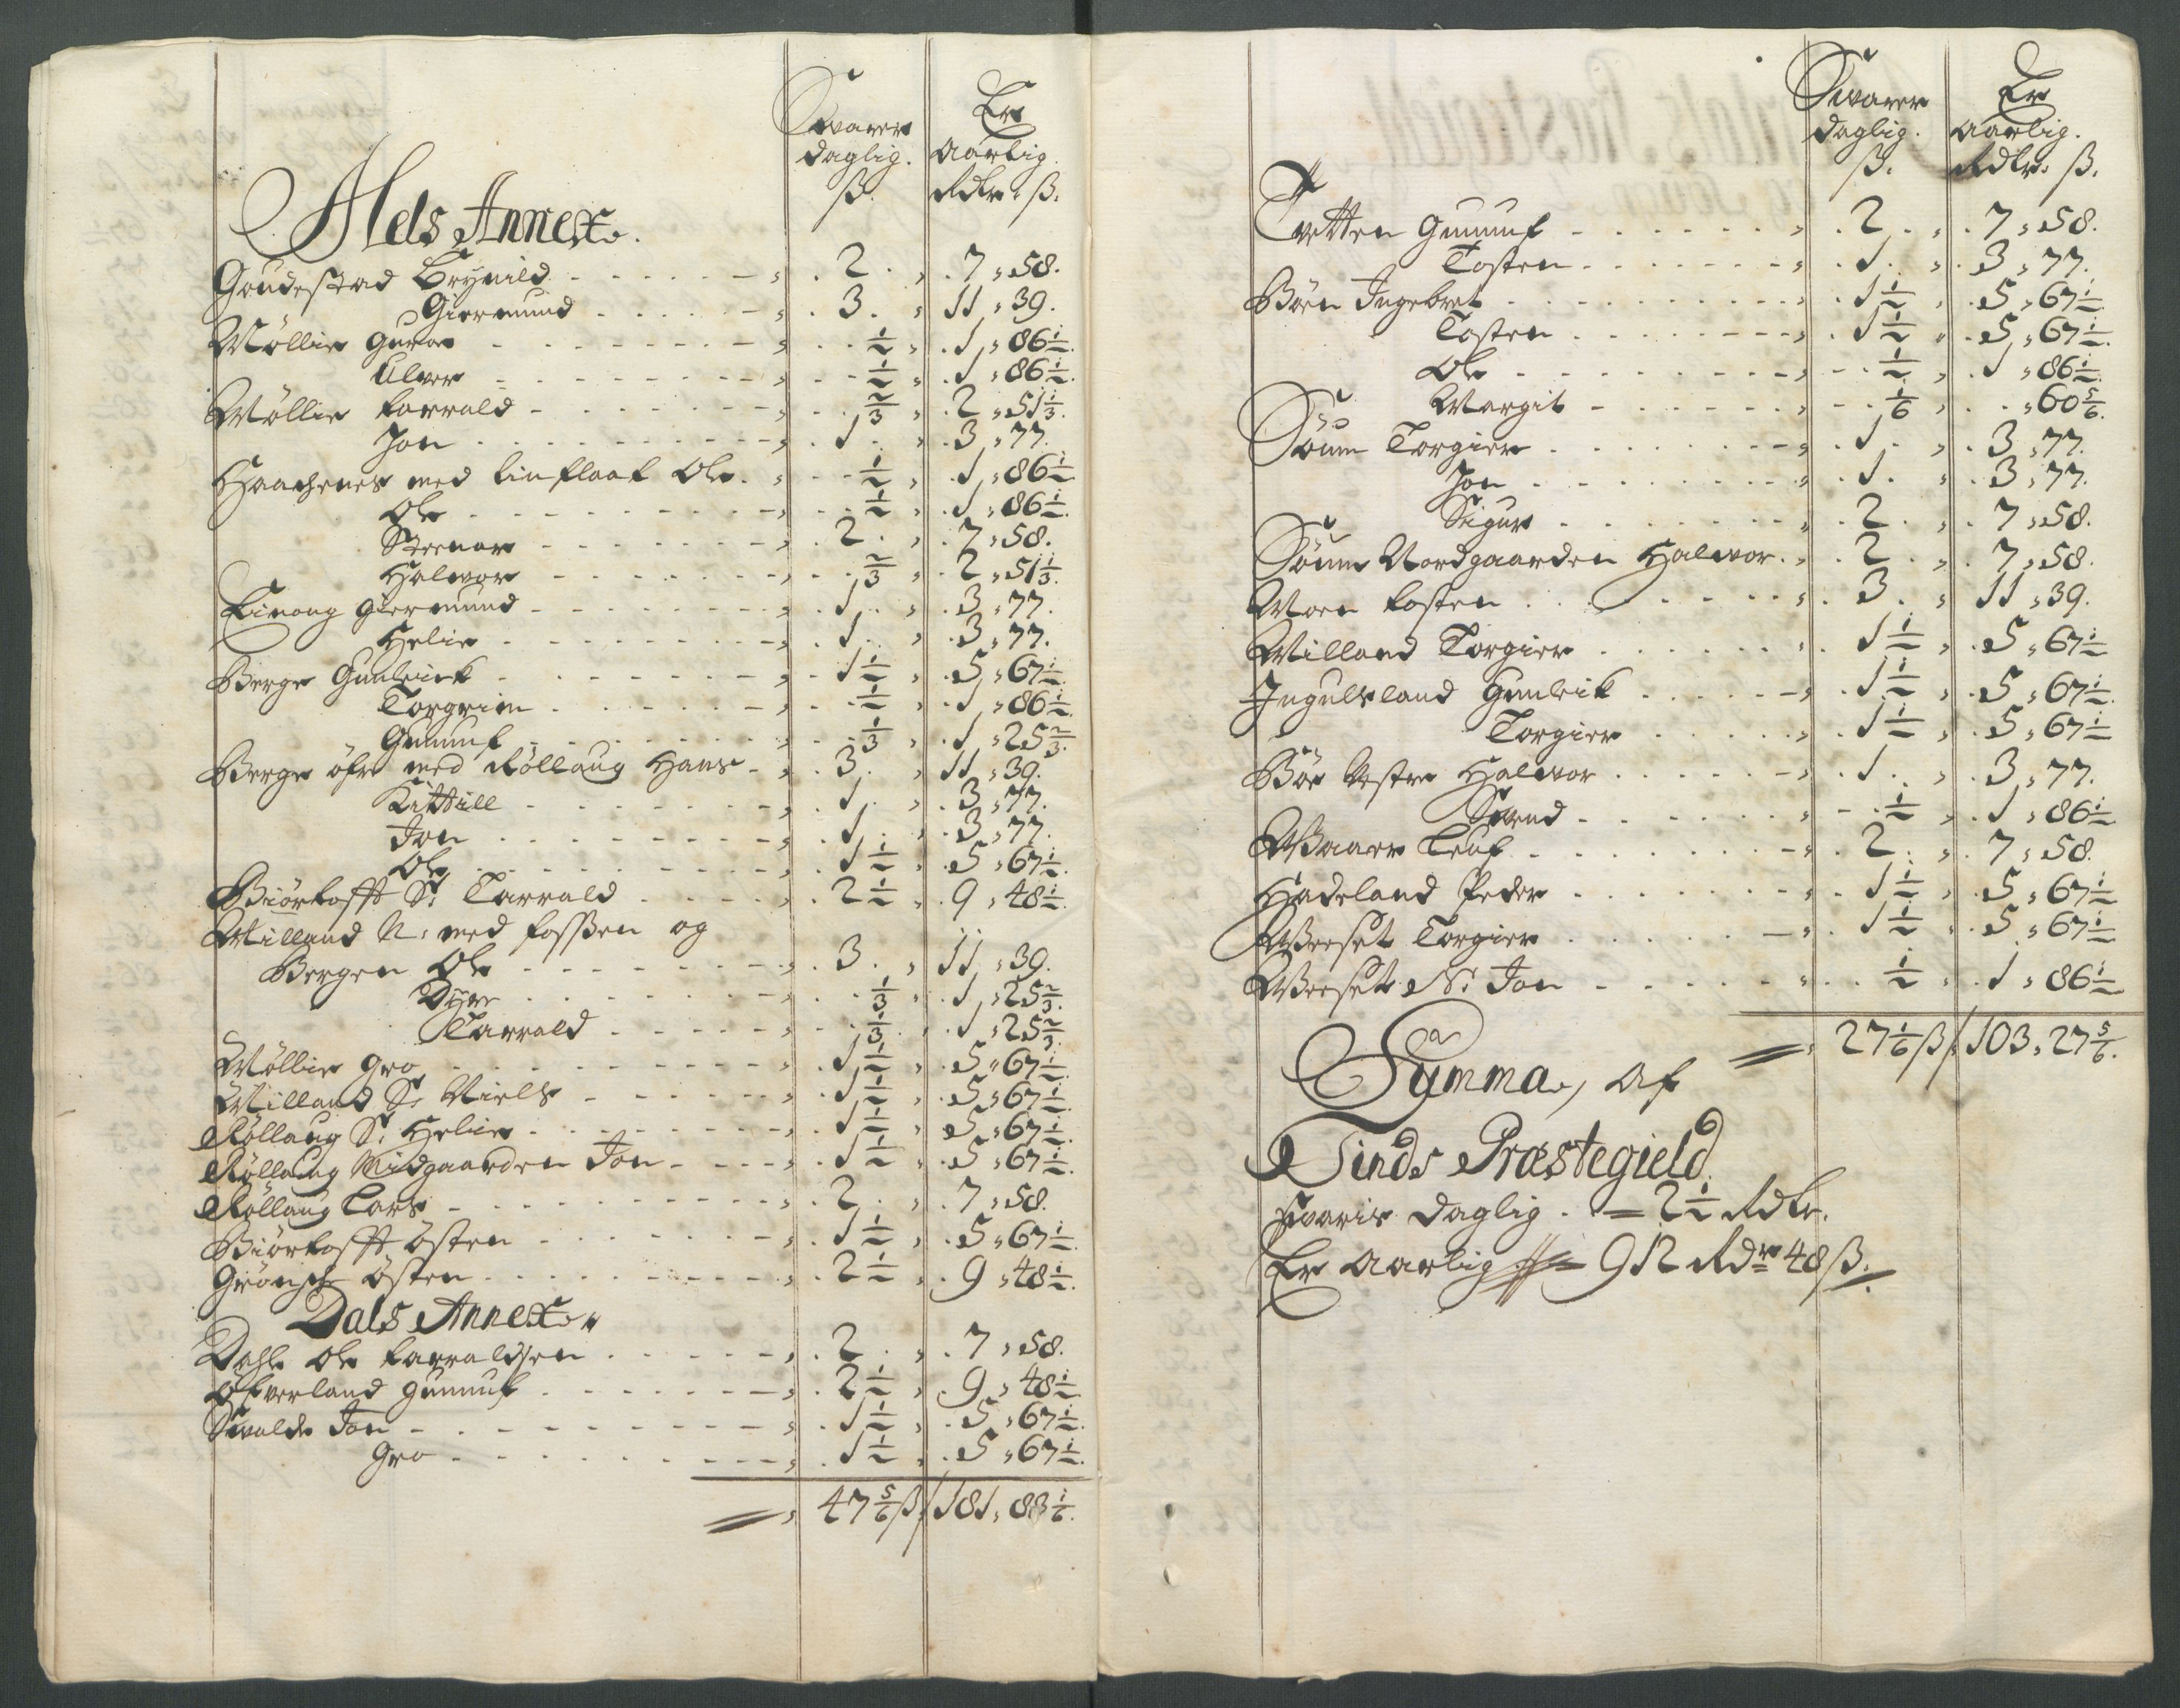 Svarer Er
daglig. Aarlig.
ß. Rdlr. ß.
Hels Annex.
Goudestad Brynild - - - , . 2 . , . 7 , 58.
Giermund - - - , . 3 . , 11 , 39.
Møllie Guroe - - - , . . 1/2 , . 1 , 86 1/2.
Ulver - - - , . . 1/2 , . 1 , 86 1/2.
Møllie Tarrald - - - , . . 2/3 , . 2 , 51 1/3.
Jon - - - , . 1 . , . 3 , 77.
Haachenes med Ole . , . . 1/2 , . 1 , 86 1/2
Ole - - - , . . 1/2 , . 1 , 86 1/2.
Steenar - - - , . 2 . , . 7 , 58.
Halvor - - - , . . 2/3 , . 2 , 51 1/3.
Giermund - - - , . 1 . , . 3 , 77.
Helie - - - , . 1 . , . 3 , 77.
Berge Gunleick - - - , . 1 1/2 , . 5 , 67 1/2.
Torgrim - - - , . . 1/2 , . 1 , 86 1/2.
Gunnuf - - - , . . 1/3 , . 1 , 25 2/3.
Berge øfre med Rollaug Hans - , . 3 . , 11 , 39.
Kittill - - - , . 1 . , . 3 , 77.
Jon - - - , . 1 . , . 3 , 77.
Ole - - - , . 1 1/2 , . 5 , 67 1/2.
Biørtofft S: Tarrald - - - , . 2 1/2 , . 9 , 48 1/2.
Milland N: med Fossen og
Bergen Ole - - - , . 3 . , 11 , 39.
Dyre - - - , . . 1/3 , . 1 , 25 2/3.
Tarrald - - - , . . 1/3 , . 1 , 25 2/3.
Møllie Gro - - - , . 1 1/2 , . 5 , 67 1/2.
Milland S: Niels - - - , . 1 1/2 , . 5 , 67 1/2.
Røllaug S: Helie - - - , . 1 1/2 , . 5 , 67 1/2.
Røllaug Midgaarden Jon - - - , . 1 1/2 , . 5 , 67 1/2.
Røllaug Lars - - - , . 2 . , . 7 , 58.
Biørtofft Østen - - - , . 1 1/2 , . 5 , 67 1/2.
Østen - - - , . 2 1/2 , . 9 , 48 1/2.
Dals Annex.
Dahle Ole Tarraldsen - - - , . 2 . , . 7 , 58.
Øfverland Gunnuf - - - , . 2 1/2 , . 9 , 48 1/2.
Svalde Jon - - - , . 1 1/2 , . 5 , 67 1/2.
Gro - - - , . 1 1/2 , . 5 , 67 1/2.
= , 47 5/6 ß / 181 , 88 1/6.
Svarer Er
daglig. Aarlig.
ß. Rdlr: ß.
Tvetten Gunnuf - - - , . 2 . , . 7 , 58.
Tosten - - - , . 1 . , . 3 , 77.
Bøen Ingebret - - - , . 1 1/2 , . 5 , 67 1/2
Tosten - - - , . 1 1/2 , . 5 , 67 1/2.
Ole - - - , . . 1/2 , . 1 , 86 1/2.
Margit - - - , . . 1/6 , . . , 60 5/6.
Søum Torgier - - - , . 1 . , . 3 , 77.
Jon - - - , . 1 . , . 3 , 77.
Sigur - - - , . 2 . , . 7 , 58.
Søum Nordgaarden Halvor . , . 2 . , . 7 , 58.
Moen Tosten - - - , . 3 . , 11 , 39.
Milland Torgier - - - , . 1 1/2 , . 5 , 67 1/2
Ingulsland Gunleik - - - , . 1 1/2 , . 5 , 67 1/2.
Torgier - - - , . 1 1/2 , . 5 , 67 1/2
Bøe Vestre Halvor - - - , . 1 . , . 3 , 77.
Svend - - - , . . 1/2 , . 1 , 86 1/2
Waaer Leuf - - - , . 2 . , . 7 , 58.
Hadeland Peder - - - , . 1 1/2 , . 5 , 67 1/2
Weeset Torgier - - - , . 1 1/2 , . 5 , 67 1/2
Weeset N: Jon - - - , . . 1/2 , . 1 , 86 1/2
= , 27 1/6 ß / 103 , 27 5/6.
Summa, Af
Tinds Præstegield
Svaris daglig . = 2 1/2 Rdlr.
Er Aarlig = 912 Rdr 48 ß.